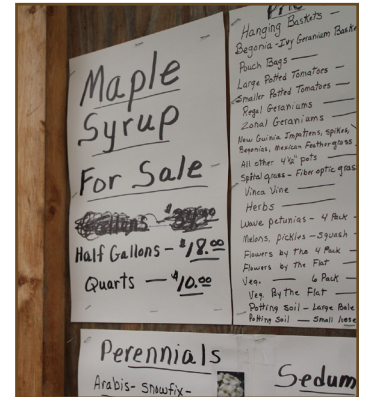 Maple
Syrup
For Sale
Half Gallons - $18.00
Quarts - $10.00
Hanging Baskets -
Begonia - Ivy Geranium Baske
Pouch Bags -
Large Potted Tomatoes -
Smaller Potted Tomatoes -
Regal Geraniums -
Zonal Geraniums -
New Guinia Impatiens, Spikes,
Begonias, Mexican Feathergrass
All other 4½" pots -
Spiral grass - Fiber optic gras
Vinca Vine -
Herbs -
Wave petunias - 4 Pack -
Melons, pickles - Squash -
Flowers by the 4 Pack -
Flowers by the Flat -
Veg. - 6 Pack -
Veg. By The Flat -
Potting Soil - Large Bale
Potting Soil - Small
Perennials
Arabis - Snowfix -
Sedum